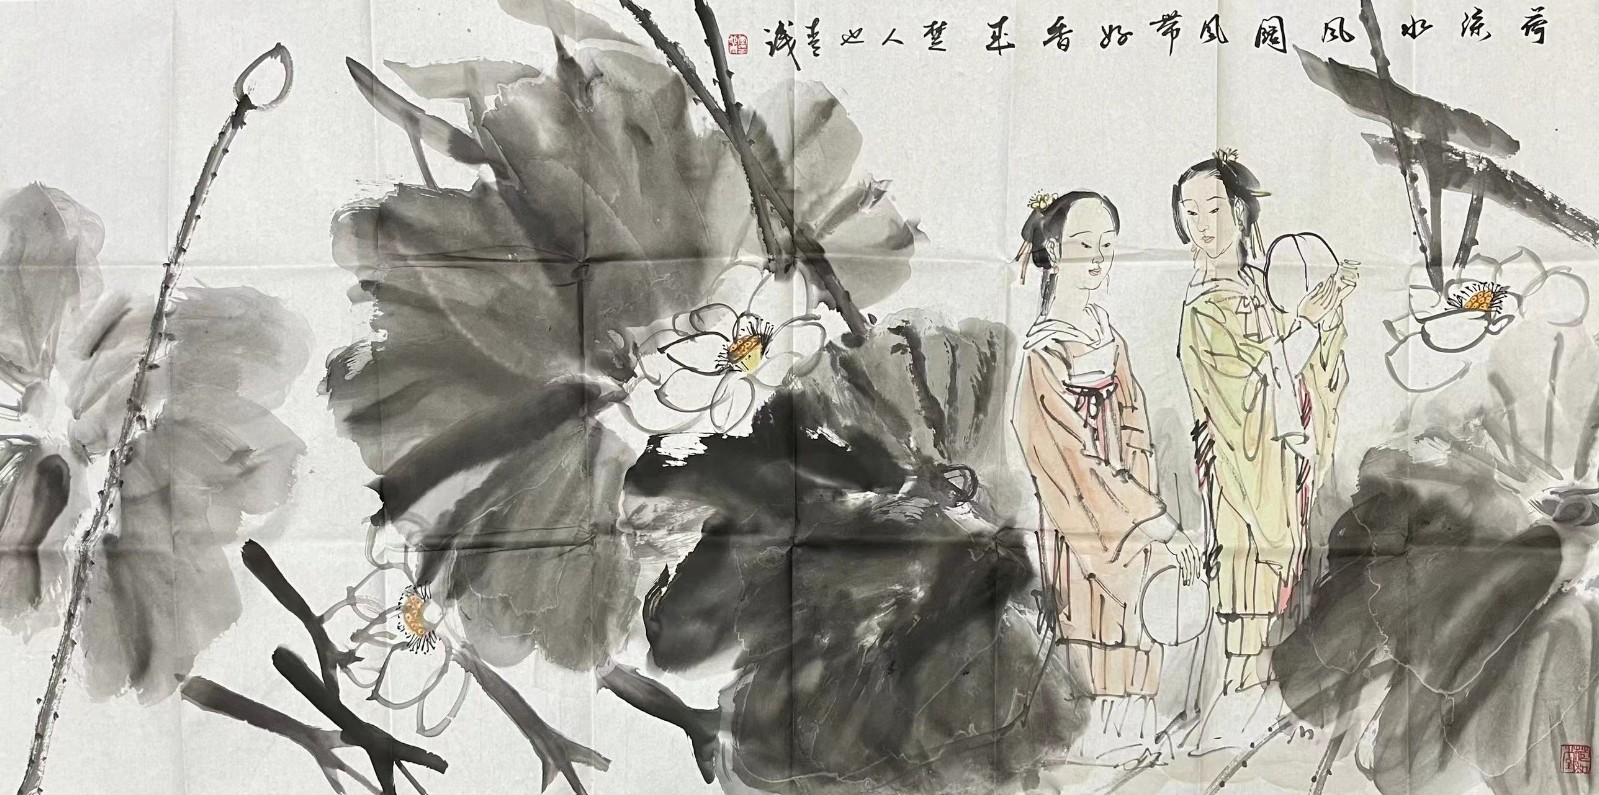 荷深水风阔风带好香来楚人也